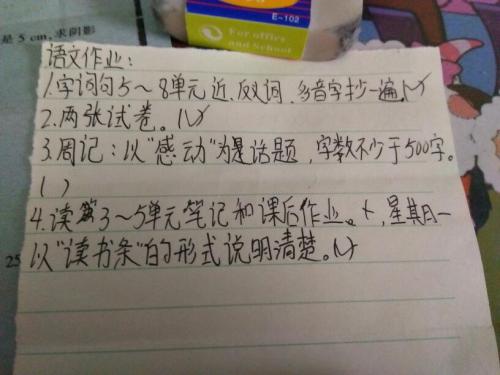 是 5 cm, 求阴影
E-102
For office
and School
语文作业：
1.字词句5～8单元近、反义词、多音字抄一遍。(√)
2.两张试卷。(√)
3.周记：以“感动”为是话题，字数不少于500字。
( )
4.读第3～5单元笔记和课后作业。星期日一
25
以“读书条”的形式说明清楚。(√)